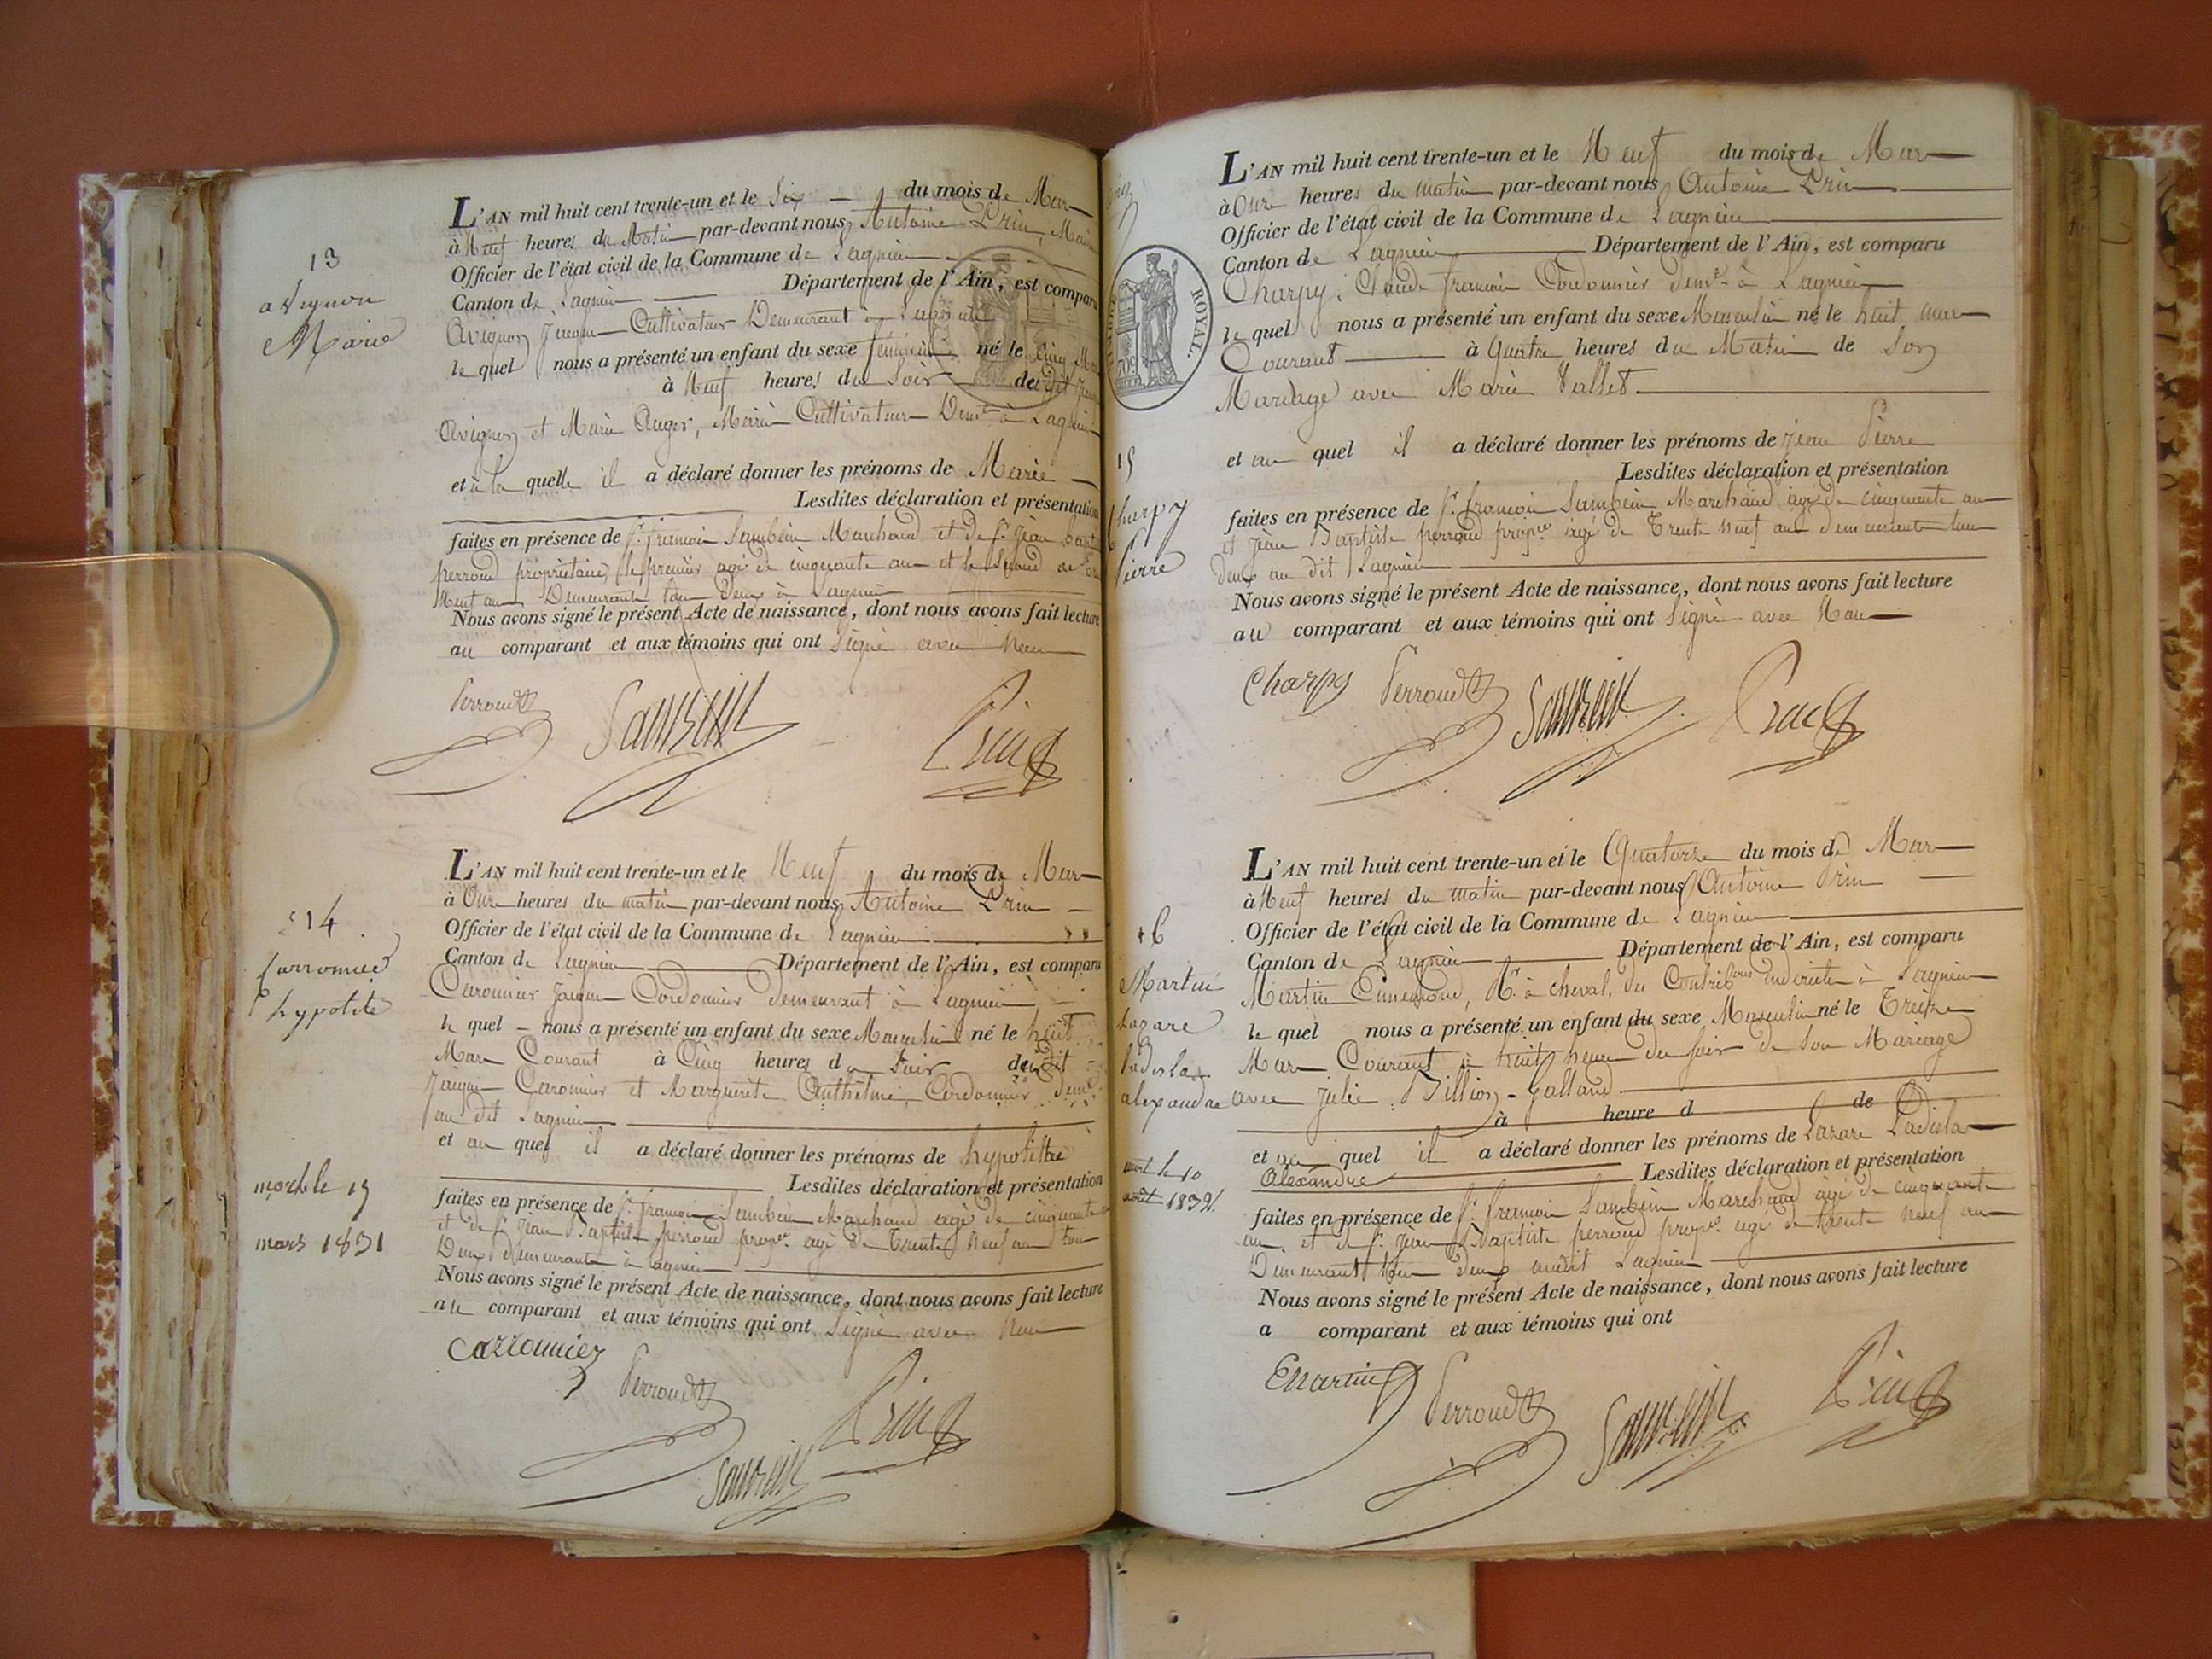 13
avignon
Marie
L'AN mil huit cent trente-un et le Six du mois de Mars
à Neuf heures du Matin par-devant nous Antoine Prin, Maire
Officier de l'état civil de la Commune de Lagnieu
Canton de Lagnieu Département de l'Ain, est comparu
Avignon Jacques Cultivateur Demeurant à Lagnieu
le quel nous a présenté un enfant du sexe féminin né le Cinq Mars
à Neuf heures du Soir du dit
Avignon et Marie Auger, Mariés Cultivateurs Demt à Lagnieu
et à la quelle il a déclaré donner les prénoms de Marie
Lesdites déclaration et présentation
faites en présence de Sr. françois Sambein Marchand et de Sr. Jean bapt
perroud propriétaire, le premier agé de cinquante ans et le Second de
Neuf ans Demeurants tous deux à Lagnieu
Nous avons signé le présent Acte de naissance, dont nous avons fait lecture
au comparant et aux témoins qui ont Signé avec Nous
Perroud Sambein Prin
514
Carronnier
hypolite
mort le 19
mars 1831
L'AN mil huit cent trente-un et le Neuf du mois de Mars
à Onze heures du matin par-devant nous Antoine Prin
Officier de l'état civil de la Commune de Lagnieu
Canton de Lagnieu Département de l'Ain, est comparu
Caronnier Jacques Cordonnier demeurant à Lagnieu
le quel nous a présenté un enfant du sexe Masculin né le huit
Mars Courant à Cinq heures du Soir du dit
Jacques Caronnier et Marguerite Anthelme, Cordonnier demt
au dit Lagnieu
et au quel il a déclaré donner les prénoms de hypolitte
Lesdites déclaration et présentation
faites en présence de Sr. françois Sambein Marchand agé de cinquante
et de Sr. Jean Baptiste perroud propre. agé de Trente Neuf ans tous
Deux demeurants à Lagnieu
Nous avons signé le présent Acte de naissance, dont nous avons fait lecture
au comparant et aux témoins qui ont Signé avec Nous
Carronnier
Perroud Prin
Sambein
TIMBRE ROYAL.
15
Charpy
Pierre
L'AN mil huit cent trente-un et le Neuf du mois de Mars
à Onze heures du matin par-devant nous Antoine Prin
Officier de l'état civil de la Commune de Lagnieu
Canton de Lagnieu Département de l'Ain, est comparu
Charpy, Claude françois Cordonnier demt à Lagnieu
le quel nous a présenté un enfant du sexe Masculin né le huit mars
Courant à Quatre heures du Matin de Son
Mariage avec Marie Vallet
et au quel il a déclaré donner les prénoms de Jean Pierre
Lesdites déclaration et présentation
faites en présence de Sr. françois Sambein Marchand agé de cinquante ans
et Jean Baptiste perroud propre. agé de Trente Neuf ans demeurants tous
deux au dit Lagnieu
Nous avons signé le présent Acte de naissance, dont nous avons fait lecture
au comparant et aux témoins qui ont Signé avec Nous
Charpy Perroud Sambein Prin
16
Martin
Lazare
ladislas
alexandre
mort le 10
août
L'AN mil huit cent trente-un et le Quatorze du mois de Mars
à Neuf heures du matin par-devant nous Antoine Prin
Officier de l'état civil de la Commune de Lagnieu
Canton de Lagnieu Département de l'Ain, est comparu
Martin Ennemond, Rr. à cheval, des Contribons indirectes à Lagnieu
le quel nous a présenté un enfant du sexe Masculin né le Treize
Mars Courant à huit heures du soir de Son Mariage
avec Julie Billion-Galland
à heure d de
et au quel il a déclaré donner les prénoms de Lazare Ladislas
Alexandre Lesdites déclaration et présentation
faites en présence de Sr. françois Sambein Marchand agé de cinquante
ans, et de Sr. Jean Baptiste perroud propre. agé de trente Neuf ans
Demeurant tous deux audit Lagnieu
Nous avons signé le présent Acte de naissance, dont nous avons fait lecture
a comparant et aux témoins qui ont
EMartin Perroud Sambein Prin